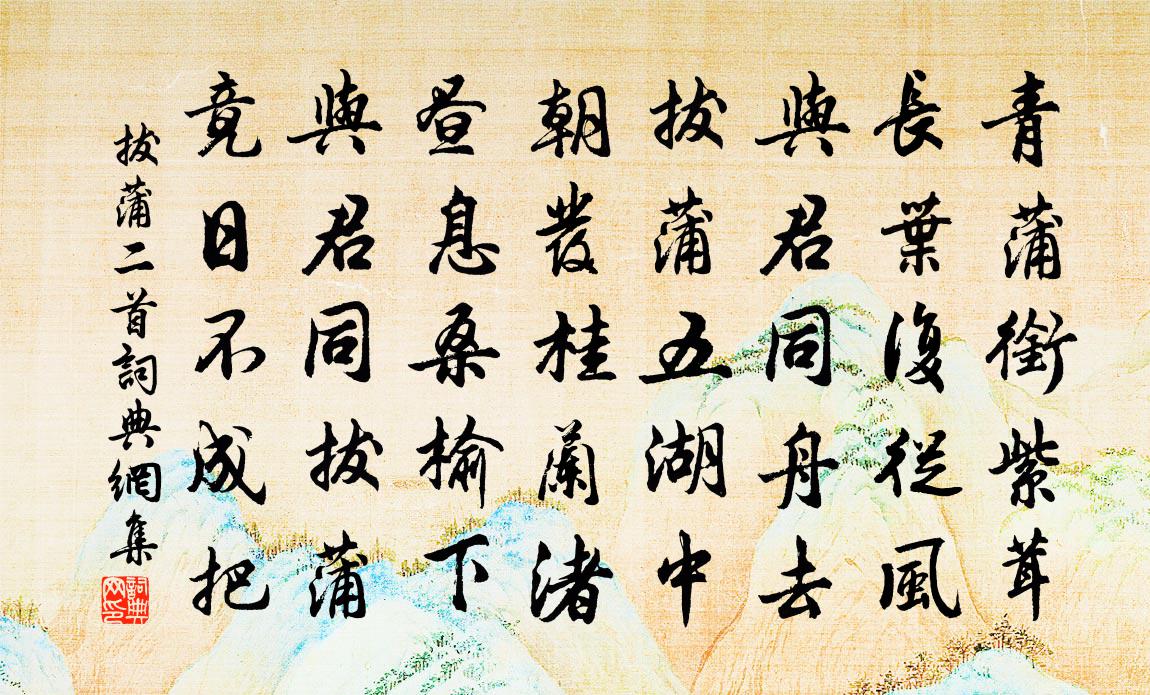 青蒲銜紫茸
長葉復從風
與君同舟去
拔蒲五湖中
朝發桂蘭渚
晝息桑榆下
與君同拔蒲
竟日不成把
拔蒲二首詞典網集
詞典网印